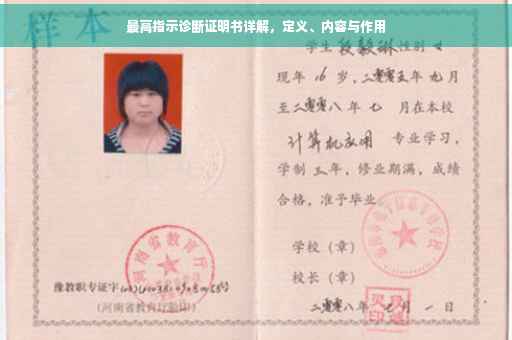 最高指示诊断证明书详解，定义、内容与作用
样本
学生段毅琳性别女
现年16岁，二零零五年九月
至二零零八年七月在本校
计算机应用 专业学习，
学制三年，修业期满，成绩
合格，准予毕业
学校（章）
校长（章）
二零零八年七月一日
河南省教育厅
豫教职专证字
（河南省教育厅验印）